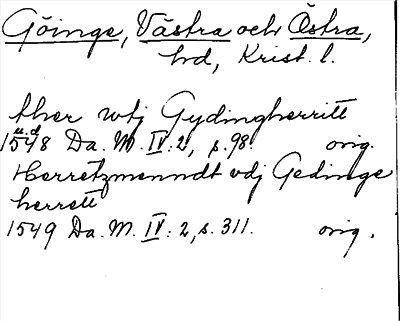 Göinge, Västra och Östra,
hd, Krist. l.
ther wtj Gydingherritt
1548 u.d. Da. M. IV: 2, s. 98. orig.
Herretzmenndt vdj Gedinge
herrett
1549 Da. M. IV: 2, s. 311. orig.